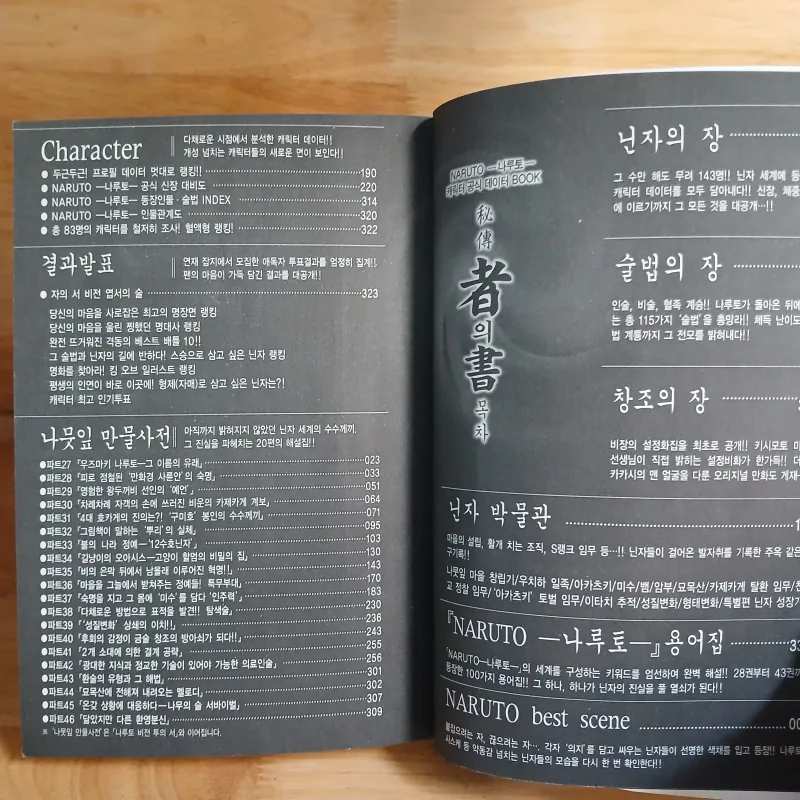 Character
다채로운 시점에서 분석한 캐릭터 데이터!!
개성 넘치는 캐릭터들의 새로운 면이 보인다!!
● 두근두근! 프로필 데이터 멋대로 랭킹!! 190
● NARUTO —나루토— 공식 신장 대비도 220
● NARUTO —나루토— 등장인물·술법 INDEX 314
● NARUTO —나루토— 인물관계도 320
● 총 83명의 캐릭터를 철저히 조사! 혈액형 랭킹! 322
결과발표
연재 잡지에서 모집한 애독자 투표결과를 엄정히 집계!!
팬의 마음이 가득 담긴 결과를 대공개!!
● 자의 서 비전 엽서의 술 323
당신의 마음을 사로잡은 최고의 명장면 랭킹
당신의 마음을 울린 찡했던 명대사 랭킹
완전 뜨거워진 격동의 베스트 배틀 10!!
그 술법과 닌자의 길에 반하다! 스승으로 삼고 싶은 닌자 랭킹
명화를 찾아라! 킹 오브 일러스트 랭킹
평생의 인연이 바로 이곳에! 형제(자매)로 삼고 싶은 닌자는?!
캐릭터 최고 인기투표
나뭇잎 만물사전
아직까지 밝혀지지 않았던 닌자 세계의 수수께끼.
그 진실을 파헤치는 20편의 해설집!!
●파트27 「우즈마키 나루토—그 이름의 유래」 023
●파트28 「피로 점철된 '만화경 사륜안'의 숙명」 033
●파트29 「영험한 왕두꺼비 선인의 '예언'」 051
●파트30 「차례차례 자객의 손에 쓰러진 비운의 카제카게 계보」 064
●파트31 「4대 호카게의 진의는?! '구미호' 봉인의 수수께끼」 071
●파트32 「그림책이 말하는 '뿌리'의 실체」 095
●파트33 「불의 나라 정예—'12수호닌자'」 103
●파트34 「길냥이의 오아시스—고양이 할멈의 비밀의 집」 130
●파트35 「비의 은막 뒤에서 남몰래 이루어진 혁명!!」 143
●파트36 「마을을 그늘에서 받쳐주는 정예들! 특무부대」 170
●파트37 「숙명을 지고 그 몸에 '미수'를 담다 '인주력'」 183
●파트38 「다채로운 방법으로 표적을 발견!! 탐색술」 230
●파트39 「'성질변화' 상쇄의 이치!!」 236
●파트40 「후회의 감정이 금술 창조의 방아쇠가 되다!!」 243
●파트41 「2개 소대에 의한 결계 공략」 255
●파트42 「광대한 지식과 정교한 기술이 있어야 가능한 의료인술」 256
●파트43 「환술의 유형과 그 해법」 301
●파트44 「묘목산에 전해져 내려오는 멜로디」 302
●파트45 「온갖 상황에 대응하다—나무의 술 서바이벌」 307
●파트46 「닮았지만 다른 환영분신」 309
※ '나뭇잎 만물사전'은 「나루토 비전 투의 서」와 이어집니다.
NARUTO —나루토—
캐릭터 공식 데이터 BOOK
秘傳
者의書
목차
닌자의 장
그 수만 해도 무려 143명!! 닌자 세계에 등
캐릭터 데이터를 모두 담아내다!! 신장, 체중
에 이르기까지 그 모든 것을 대공개…!!
술법의 장
인술, 비술, 혈족 계승!! 나루토가 돌아온 뒤에
는 총 115가지 '술법'을 총망라!! 체득 난이도
법 계통까지 그 전모를 밝혀내다!!
창조의 장
비장의 설정화집을 최초로 공개!! 키시모토 마
선생님이 직접 밝히는 설정비화가 한가득!! 더
카카시의 맨 얼굴을 다룬 오리지널 만화도 게재
닌자 박물관
마을의 설립, 활개 치는 조직, S랭크 임무 등…!! 닌자들이 걸어온 발자취를 기록한 주옥 같은
구기록!!
나뭇잎 마을 창립기/우치하 일족/아카츠키/미수/뱀/암부/묘목산/카제카게 탈환 임무/천
교 정찰 임무/'아카츠키' 토벌 임무/이타치 추적/성질변화/형태변화/특별편 닌자 성장기
『NARUTO —나루토—』 용어집 33
「NARUTO—나루토—」의 세계를 구성하는 키워드를 엄선하여 완벽 해설!! 28권부터 43권까
등장한 100가지 용어집!! 그 하나, 하나가 닌자의 진실을 풀 열쇠가 된다!!
NARUTO best scene 00
붙잡으려는 자, 끊으려는 자…. 각자 '의지'를 담고 싸우는 닌자들이 선명한 색채를 입고 등장!! 나루토
사스케 등 약동감 넘치는 닌자들의 모습을 다시 한 번 확인한다!!